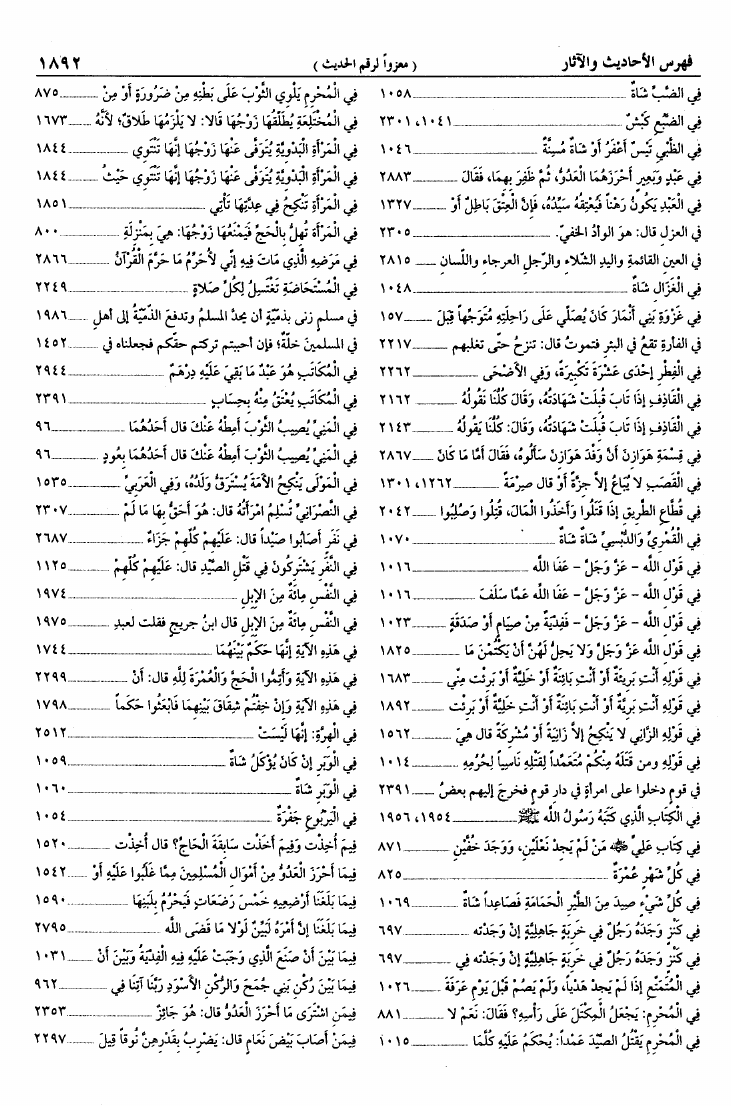 فهرس الأحاديث والآثار
( معزواً لرقم الحديث )
١٨٩٢
فِي الضَّبِّ شَاةٌ ١٠٥٨
فِي الضَّبُعِ كَبْشٌ ١٠٤١، ٢٣٠١
فِي الظَّبْيِ تَيْسٌ أَعْفَرُ أَوْ شَاةٌ مُسِنَّةٌ ١٠٤٦
فِي عَبْدٍ وَبَعِيرٍ أَحْرَزَهُمَا الْعَدُوُّ، ثُمَّ ظَفِرَ بِهِمَا، فَقَالَ ٢٨٨٣
فِي الْعَبْدِ يَكُونُ رَهْناً فَيُعْتِقُهُ سَيِّدُهُ، فَإِنَّ الْعِتْقَ بَاطِلٌ أَوْ ١٣٢٧
في العزل قال: هو الوأدُ الخفيّ. ٢٣٠٥
في العين القائمةِ واليدِ الشَّلاء والرِّجلِ العرجاء واللِّسان ٢٨١٥
فِي الْغَزَالِ شَاةٌ ١٠٤٨
فِي غَزْوَةِ بَنِي أَنْمَارَ كَانَ يُصَلِّي عَلَى رَاحِلَتِهِ مُتَوَجِّهاً قِبَلَ ١٥٧
في الفأرةِ تقعُ في البئرِ فتموتُ قال: تنزحُ حتّى تغلبهم ٢٢١٧
فِي الْفِطْرِ إِحْدَى عَشْرَةَ تَكْبِيرَةً، وَفِي الأَضْحَى ٢٢٦٢
فِي الْقَاذِفِ إِذَا تَابَ قُبِلَتْ شَهَادَتُهُ، وَقَالَ كُلُّنَا نَقُولُهُ ٢١٦٢
فِي الْقَاذِفِ إِذَا تَابَ قُبِلَتْ شَهَادَتُهُ، وَقَالَ: كُلُّنَا يَقُولُهُ ٢١٤٣
فِي قِسْمَةِ هَوَازِنَ أَنَّ وَفْدَ هَوَازِنَ سَأَلُوهُ، فَقَالَ أَمَّا مَا كَانَ ٢٨٦٧
فِي الْقَصَبِ لاَ يُبَاعُ إِلاَّ جِزَّةً أَوْ قال صِرمَةً ١٢٦٢، ١٣٠١
فِي قُطَّاعِ الطَّرِيقِ إِذَا قَتَلُوا وَأَخَذُوا الْمَالَ، قُتِلُوا وَصُلِبُوا ٢٠٤٢
فِي الْقُمْرِيِّ وَالدُّبْسِيِّ شَاةٌ شَاةٌ ١٠٧٠
فِي قَوْلِ اللَّه - عَزَّ وَجَلَّ - عَفَا اللَّه ١٠١٦
فِي قَوْلِ اللَّه - عَزَّ وَجَلَّ - عَفَا اللَّه عَمَّا سَلَفَ ١٠١٦
فِي قَوْلِ اللَّه - عَزَّ وَجَلَّ - فَفِدْيَةٌ مِنْ صِيَامٍ أَوْ صَدَقَةٍ ١٠٢٣
فِي قَوْلِ اللَّه عَزَّ وَجَلَّ وَلاَ يَحِلُّ لَهُنَّ أَنْ يَكْتُمْنَ مَا ١٨٢٥
فِي قَوْلِهِ أَنْتِ بَرِيئَةٌ أَوْ أَنْتِ بَائِنَةٌ أَوْ خَلِيَّةٌ أَوْ بَرِئْتِ مِنِّي ١٦٨٣
فِي قَوْلِهِ أَنْتِ بَرِيَّةٌ أَوْ أَنْتِ بَائِنَةٌ أَوْ أَنْتِ خَلِيَّةٌ أَوْ بَرِئْت ١٨٩٢
فِي قَوْلِهِ الزَّانِي لاَ يَنْكِحُ إِلاَّ زَانِيَةً أَوْ مُشْرِكَةً قال هِيَ ١٥٦٢
فِي قَوْلِهِ ومن قَتَلَهُ مِنْكُمْ مُتَعَمِّداً لِقَتْلِهِ نَاسِياً لِحُرُمِهِ ١٠١٤
في قومٍ دخلوا على امرأةٍ في دار قومٍ فخرجَ إليهم بعضُ ٢٣٩١
فِي الْكِتَابِ الَّذِي كَتَبَهُ رَسُولُ اللَّه ﷺ ١٩٥٤، ١٩٥٦
فِي كِتَابِ عَلِيٍّ ﵁ مَنْ لَمْ يَجِدْ نَعْلَيْنِ، وَوَجَدَ خُفَّيْنِ ٨٧١
فِي كُلِّ شَهْرٍ عُمْرَةٌ ٨٢٥
فِي كُلِّ شَيْءٍ صِيدَ مِنَ الطَّيْرِ الْحَمَامَةِ فَصَاعِداً شَاةٌ ١٠٦٩
فِي كَنْزٍ وَجَدَهُ رَجُلٌ فِي خَرِبَةٍ جَاهِلِيَّةٍ إِنْ وَجَدْته ٦٩٧
فِي كَنْزٍ وَجَدَهُ رَجُلٌ فِي خَرِبَةٍ جَاهِلِيَّةٍ إِنْ وَجَدْته فِي ٦٩٧
فِي الْمُتَمَتِّعِ إِذَا لَمْ يَجِدْ هَدْياً، وَلَمْ يَصُمْ قَبْلَ يَوْمِ عَرَفَةَ ١٠٢٦
فِي الْمُحْرِمِ: يَجْعَلُ الْمِكْتَلَ عَلَى رَأْسِهِ؟ فَقَالَ: نَعَمْ لا ٨٨١
فِي الْمُحْرِمِ يَقْتُلُ الصَّيْدَ عَمْداً: يُحْكَمُ عَلَيْهِ كُلَّمَا ١٠١٥
فِي الْمُحْرِمِ يَلْوِي الثَّوْبَ عَلَى بَطْنِهِ مِنْ ضَرُورَةٍ أَوْ مِنْ ٨٧٥
فِي الْمُخْتَلِعَةِ يُطَلِّقُهَا زَوْجُهَا قَالا: لا يَلْزَمُهَا طَلاقٌ؛ لأَنَّهُ ١٦٧٣
فِي الْمَرْأَةِ الْبَدَوِيَّةِ يُتَوَفَّى عَنْهَا زَوْجُهَا إِنَّهَا تَنْتَوِي ١٨٤٤
فِي الْمَرْأَةِ الْبَدَوِيَّةِ يُتَوَفَّى عَنْهَا زَوْجُهَا إِنَّهَا تَنْتَوِي حَيْثُ ١٨٤٤
فِي الْمَرْأَةِ تَنْكِحُ فِي عِدَّتِهَا تَأْتِي ١٨٥١
فِي الْمَرْأَةِ تُهِلُّ بِالْحَجِّ فَيَمْنَعُهَا زَوْجُهَا: هِيَ بِمَنْزِلَةِ ٨٠٠
فِي مَرَضِهِ الَّذِي مَاتَ فِيهِ إِنِّي لأُحَرِّمُ مَا حَرَّمَ الْقُرْآنُ ٢٨٦٦
فِي الْمُسْتَحَاضَةِ تَغْتَسِلُ لِكُلِّ صَلاَةٍ ٢٢٤٩
في مسلمٍ زنى بذميَّةٍ أن يحدَّ المسلمُ وتدفعَ الذّميّةُ إلى أهلِ ١٩٨٦
في المسلمينَ خلّةٌ؛ فإن أحببتم تركتم حقّكم فجعلناه في ١٤٥٢
فِي الْمُكَاتَبِ هُوَ عَبْدٌ مَا بَقِيَ عَلَيْهِ دِرْهَمٌ ٢٩٤٤
فِي الْمُكَاتَبِ يُعْتَقُ مِنْهُ بِحِسَابٍ ٢٣٩١
فِي الْمَنِيِّ يُصِيبُ الثَّوْبَ أَمِطْهُ عَنْكَ قال أَحَدُهُمَا ٩٦
فِي الْمَنِيِّ يُصِيبُ الثَّوْبَ أَمِطْهُ عَنْكَ قال أَحَدُهُمَا بِعُودٍ ٩٦
فِي الْمَوْلَى يَنْكِحُ الأَمَةَ يُسْتَرَقُّ وَلَدُهُ، وَفِي الْعَرَبِيِّ ١٥٣٥
فِي النَّصْرَانِيِّ تُسْلِمُ امْرَأَتُهُ قال: هُوَ أَحَقُّ بِهَا مَا لَمْ ٢٣٠٧
فِي نَفَرٍ أَصَابُوا صَيْداً قال: عَلَيْهِمْ كُلِّهِمْ جَزَاءٌ ٢٦٨٧
فِي النَّفَرِ يَشْتَرِكُونَ فِي قَتْلِ الصَّيْدِ قال: عَلَيْهِمْ كُلِّهِمْ ١١٢٥
فِي النَّفْسِ مِائَةٌ مِنَ الإبِلِ ١٩٧٤
فِي النَّفْسِ مِائَةٌ مِنَ الإبِلِ قال ابنُ جريجٍ فقلت لعبدِ ١٩٧٥
فِي هَذِهِ الآيَةِ إِنَّهَا حَكَمٌ بَيْنَهُمَا ١٧٤٤
فِي هَذِهِ الآيَةِ وَأَتِمُّوا الْحَجَّ وَالْعُمْرَةَ لِلَّهِ قال: أَنْ ٢٢٩٩
فِي هَذِهِ الآيَةِ وَإِنْ خِفْتُمْ شِقَاقَ بَيْنِهِمَا فَابْعَثُوا حَكَماً ١٧٩٨
فِي الْهِرَّةِ: إِنَّهَا لَيْسَتْ ٢٥١٢
فِي الْوَبْرِ إِنْ كَانَ يُؤْكَلُ شَاةٌ ١٠٥٩
فِي الْوَبْرِ شَاةٌ ١٠٦٠
فِي الْيَرْبُوعِ جَفْرَةٌ ١٠٥٤
فِيمَ أُخِذْتَ وَفِيمَ أَخَذَتْ سَابِقَةَ الْحَاجِّ؟ قال أُخِذْت ١٥٢٠
فِيمَا أَحْرَزَ الْعَدُوُّ مِنْ أَمْوَالِ الْمُسْلِمِينَ مِمَّا غَلَبُوا عَلَيْهِ أَوْ ١٥٤٢
فِيمَا بَلَغَنَا أَرْضِعِيهِ خَمْسَ رَضَعَاتٍ فَيَحْرُمُ بِلَبَنِهَا ١٥٩٠
فِيمَا بَلَغَنَا إِنَّ أَمْرَهُ لَبَيِّنٌ لَوْلاَ مَا قَضَى اللَّه ٢٧٩٥
فِيمَا بَيْنَ أَنْ صَنَعَ الَّذِي وَجَبَتْ عَلَيْهِ فِيهِ الْفِدْيَةُ وَبَيْنَ أَنْ ١٠٣١
فِيمَا بَيْنَ رُكْنِ بَنِي جُمَحَ وَالرُّكْنِ الأَسْوَدِ رَبَّنَا آتِنَا فِي ٩٦٢
فِيمَنِ اشْتَرَى مَا أَحْرَزَ الْعَدُوُّ قال: هُوَ جَائِزٌ ٢٣٥٣
فِيمَنْ أَصَابَ بَيْضَ نَعَامٍ قال: يَضْرِبُ بِقَدْرِهِنَّ نُوقاً قِيلَ ٢٢٩٧